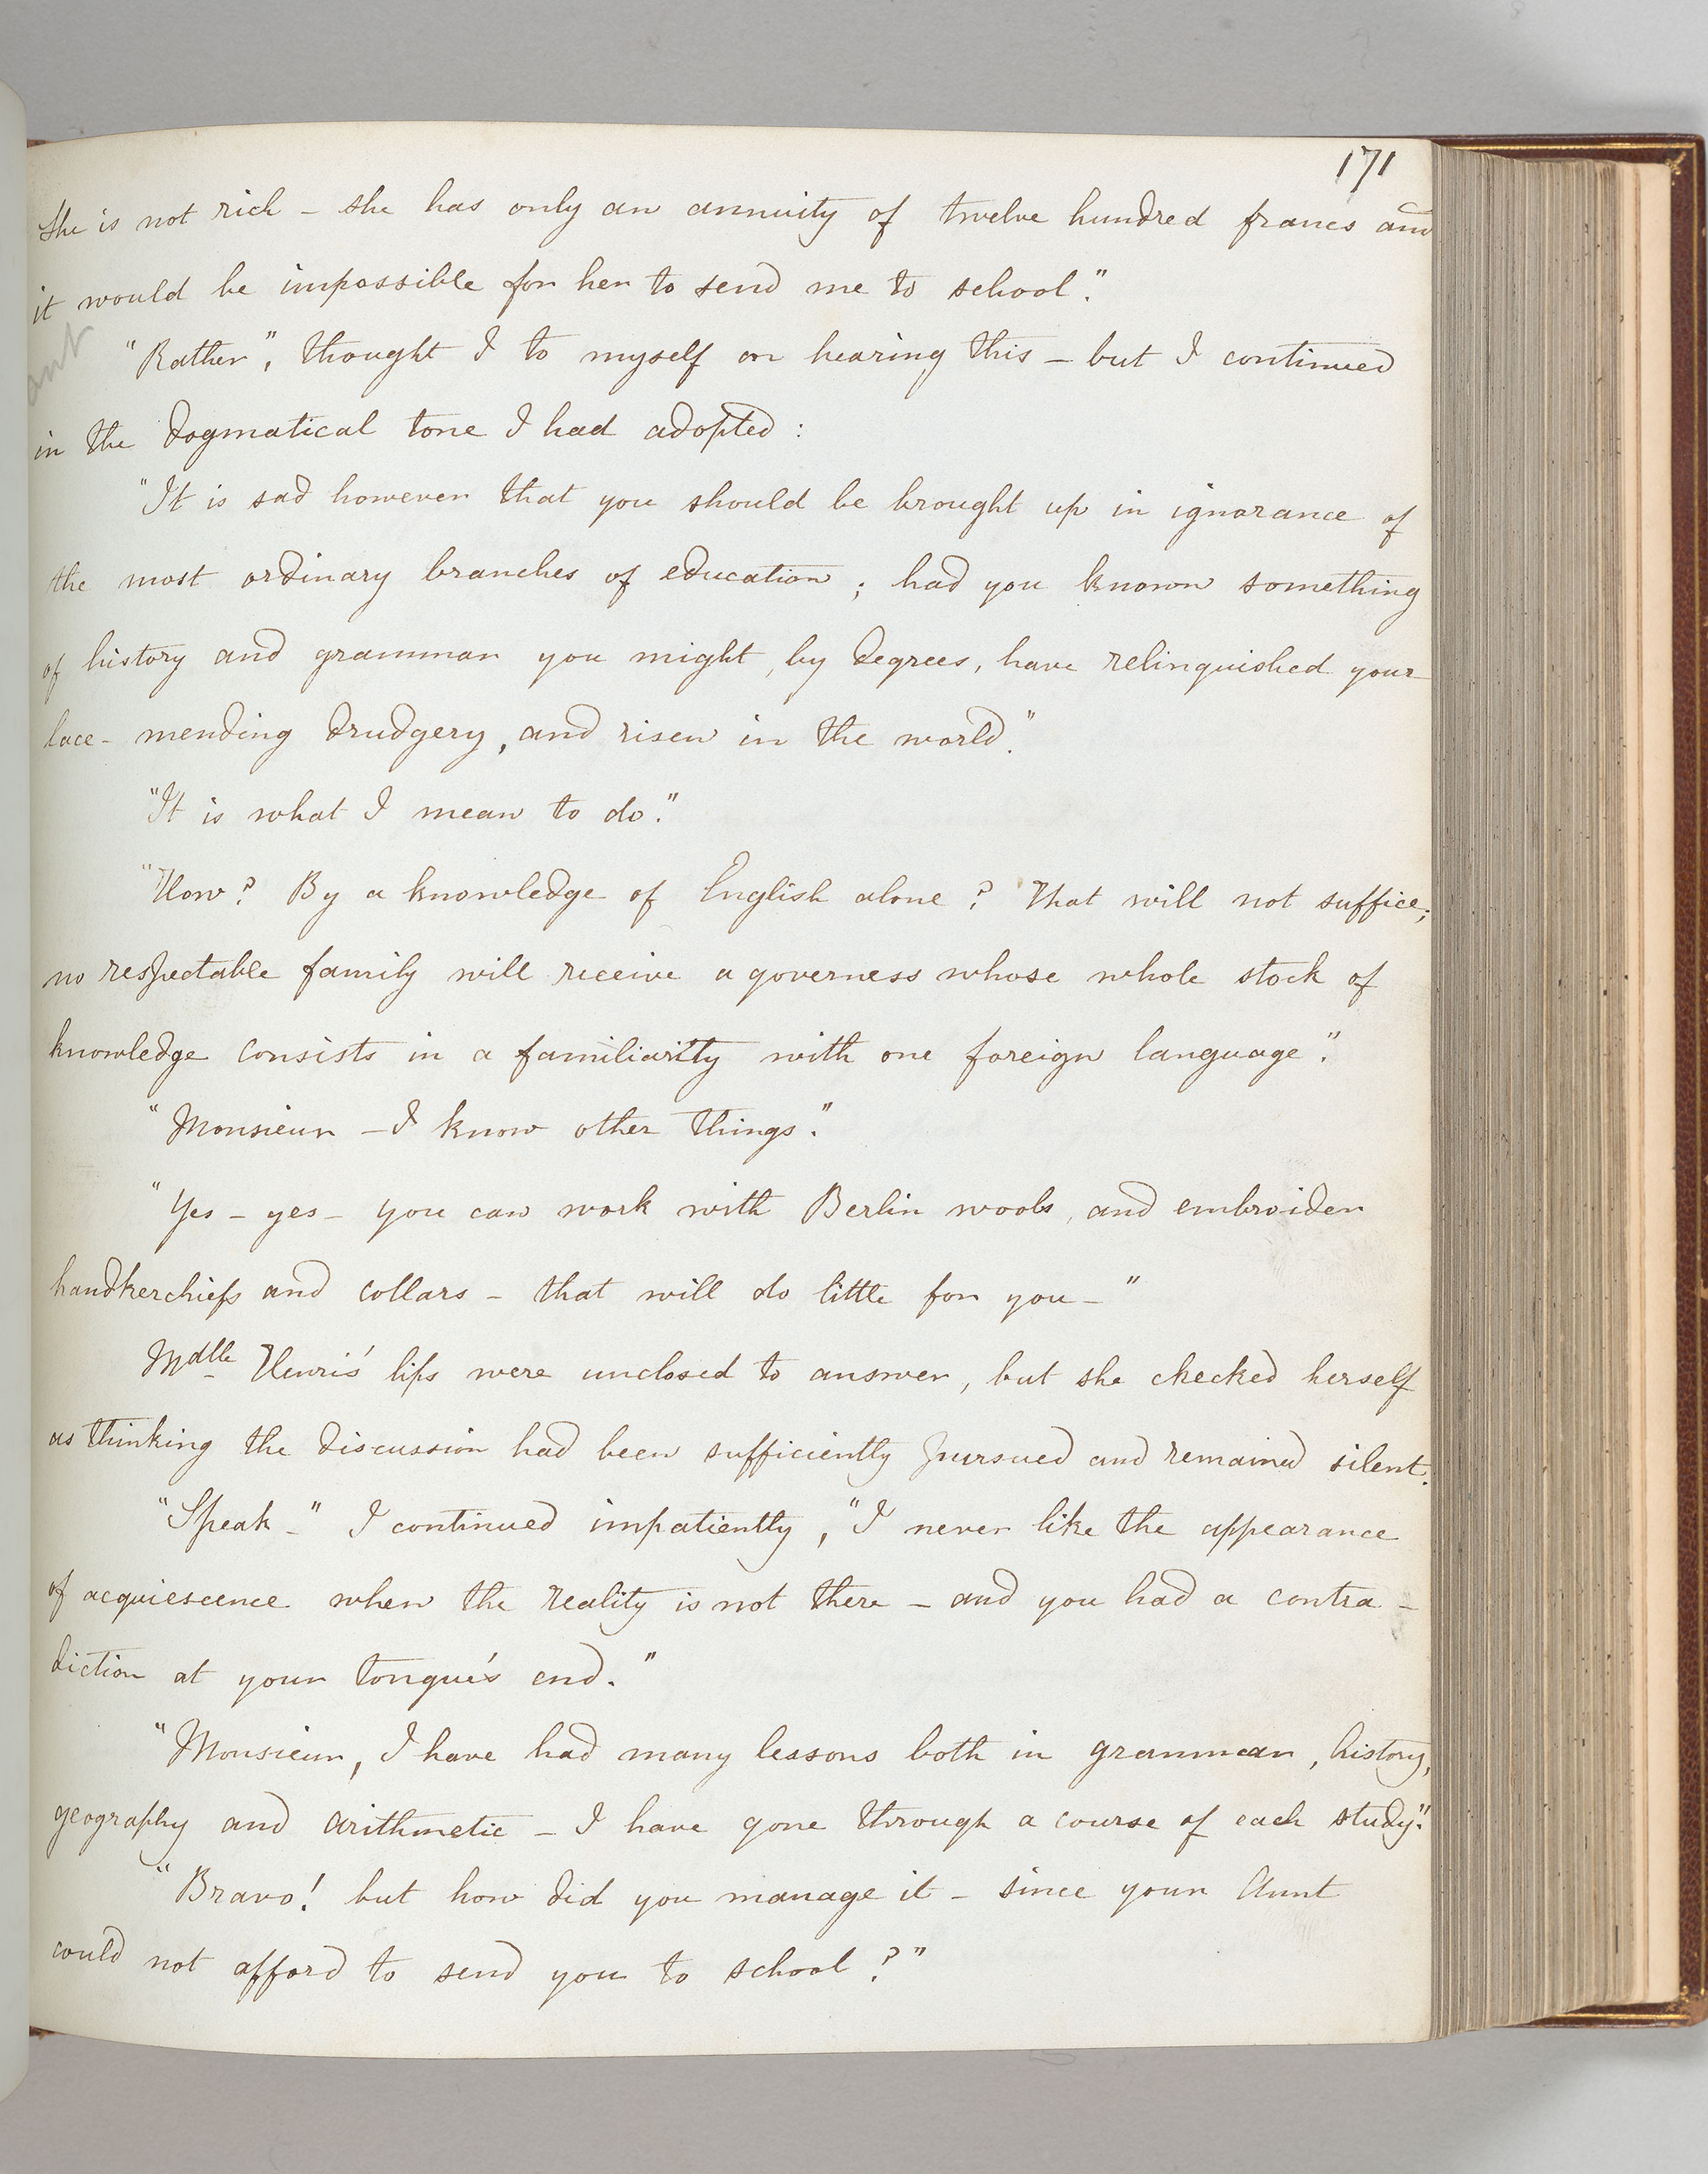 171
She is not rich - she has only an annuity of twelve hundred francs and
it would be impossible for her to send me to school."
"Rather", thought I to myself on hearing this - but I continued
in the dogmatical tone I had adopted :
"It is sad however that you should be brought up in ignorance of
the most ordinary branches of education ; had you known something
of history and grammar you might, by degrees, have relinquished your
lace-mending drudgery, and risen in the world."
"It is what I mean to do."
"How? By a knowledge of English alone? That will not suffice;
no respectable family will receive a governess whose whole stock of
knowledge consists in a familiarity with one foreign language."
"Monsieur - I know other things."
"Yes - yes - you can work with Berlin wools, and embroider
handkerchiefs and collars - that will do little for you - "
Mdlle Henri's lips were unclosed to answer, but she checked herself
as thinking the discussion had been sufficiently pursued and remained silent.
"Speak - " I continued impatiently, "I never like the appearance
of acquiescence when the reality is not there - and you had a contra-
diction at your tongue's end."
"Monsieur, I have had many lessons both in grammar, history,
geography and arithmetic - I have gone through a course of each study."
"Bravo! but how did you manage it - since your Aunt
could not afford to send you to school?"